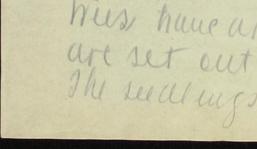 trees have a
are set out
The seedlings